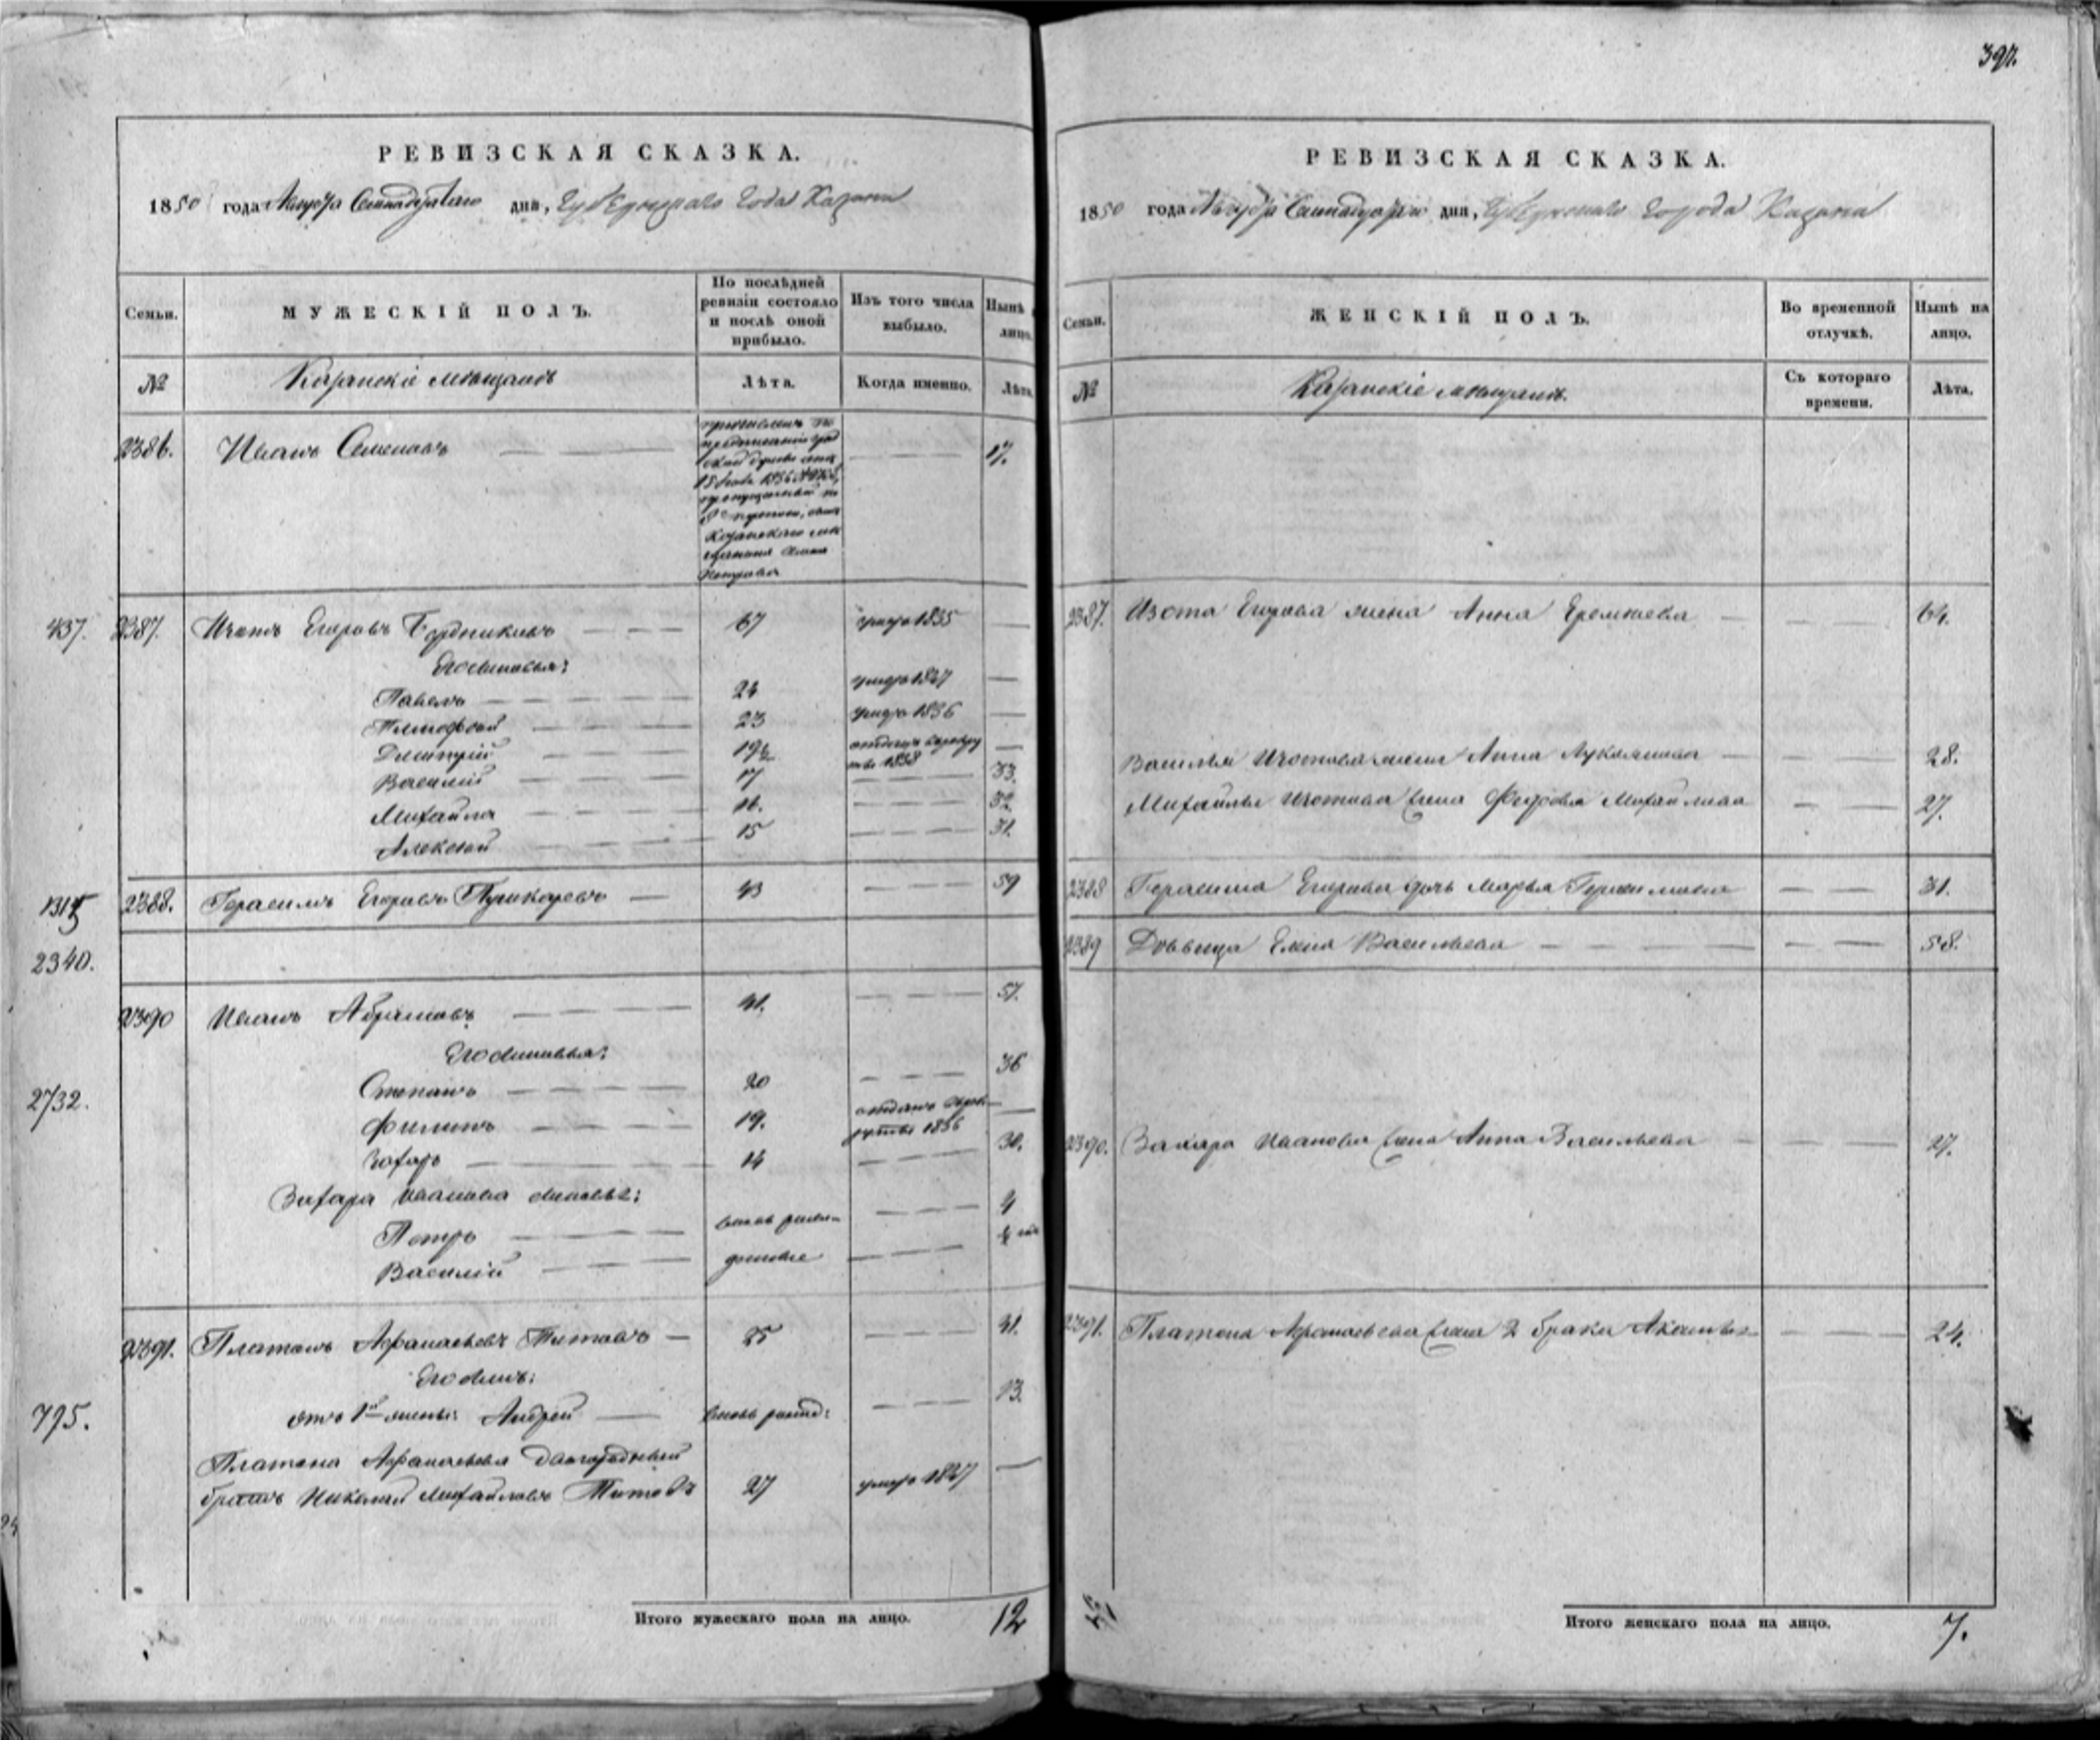 397.
РЕВИЗСКАЯ СКАЗКА.
1850 года Августа Семнадцатаго дня, Губернскаго Города Казани
Семьи.
МУЖЕСКІЙ ПОЛЪ.
По послѣдней ревизіи состояло и послѣ оной прибыло.
Изъ того числа выбыло.
Нынѣ лицо.
№
Казанскіе мѣщане
Лѣта.
Когда именно.
Лѣта.
2386.
Иванъ Семеновъ
17.
причисленъ по
предписанію Град
ской думы отъ
1836
пропущенный по
8 ревизіи,
Казанскаго мѣ
щанина
Петрова
437.
2387.
Изотъ Егоровъ
67
умеръ 1835
Его сыновья:
Павелъ 24 умеръ 1847
Тимофей 23 умеръ 1836
Дмитрій 19½ отданъ въ рекру
ты 1838
Василій 17 33.
Михайла 16. 32.
Алексѣй 15 31.
1315
2388.
Герасимъ Егоровъ Пушкаревъ 43 59
2340.
2390
Иванъ Абрамовъ 41. 57.
Его сыновья:
Степанъ 20 36
2732.
Филипъ 19. отданъ въ рек
руты 1836
Захаръ 14 30.
Захара Иванова сыновья:
Петръ вновь рож 4
Василій денные ½
2391.
Платонъ Афанасьевъ Титовъ 25 41.
Его сынъ:
795.
отъ 1й жены: Андрей вновь рожд: 13.
Платона Афанасьева двоюродный
братъ Николай Михайловъ Титовъ 27 умеръ 1847
Итого мужескаго пола на лицо. 12
РЕВИЗСКАЯ СКАЗКА.
1850 года Августа Семнадцатаго дня, Губернскаго Города Казани
Семьи.
ЖЕНСКІЙ ПОЛЪ.
Во временной отлучкѣ.
Нынѣ на лицо.
№
Казанскіе мѣщане.
Съ котораго времени.
Лѣта.
2387. Изота Егорова жена Анна Еремѣева 64.
Василья Изотова жена Анна Лукоянова 28.
Михайлы Изотова жена Михайлова 27.
2388 Герасима Егорова дочь Марья Герасимова 31.
2389 Дѣвица Елена Васильева 58.
2390. Захара Иванова жена Анна Васильева 27.
2391. Платона Афанасьева жена 2 брака 24.
Итого женскаго пола на лицо. 7.